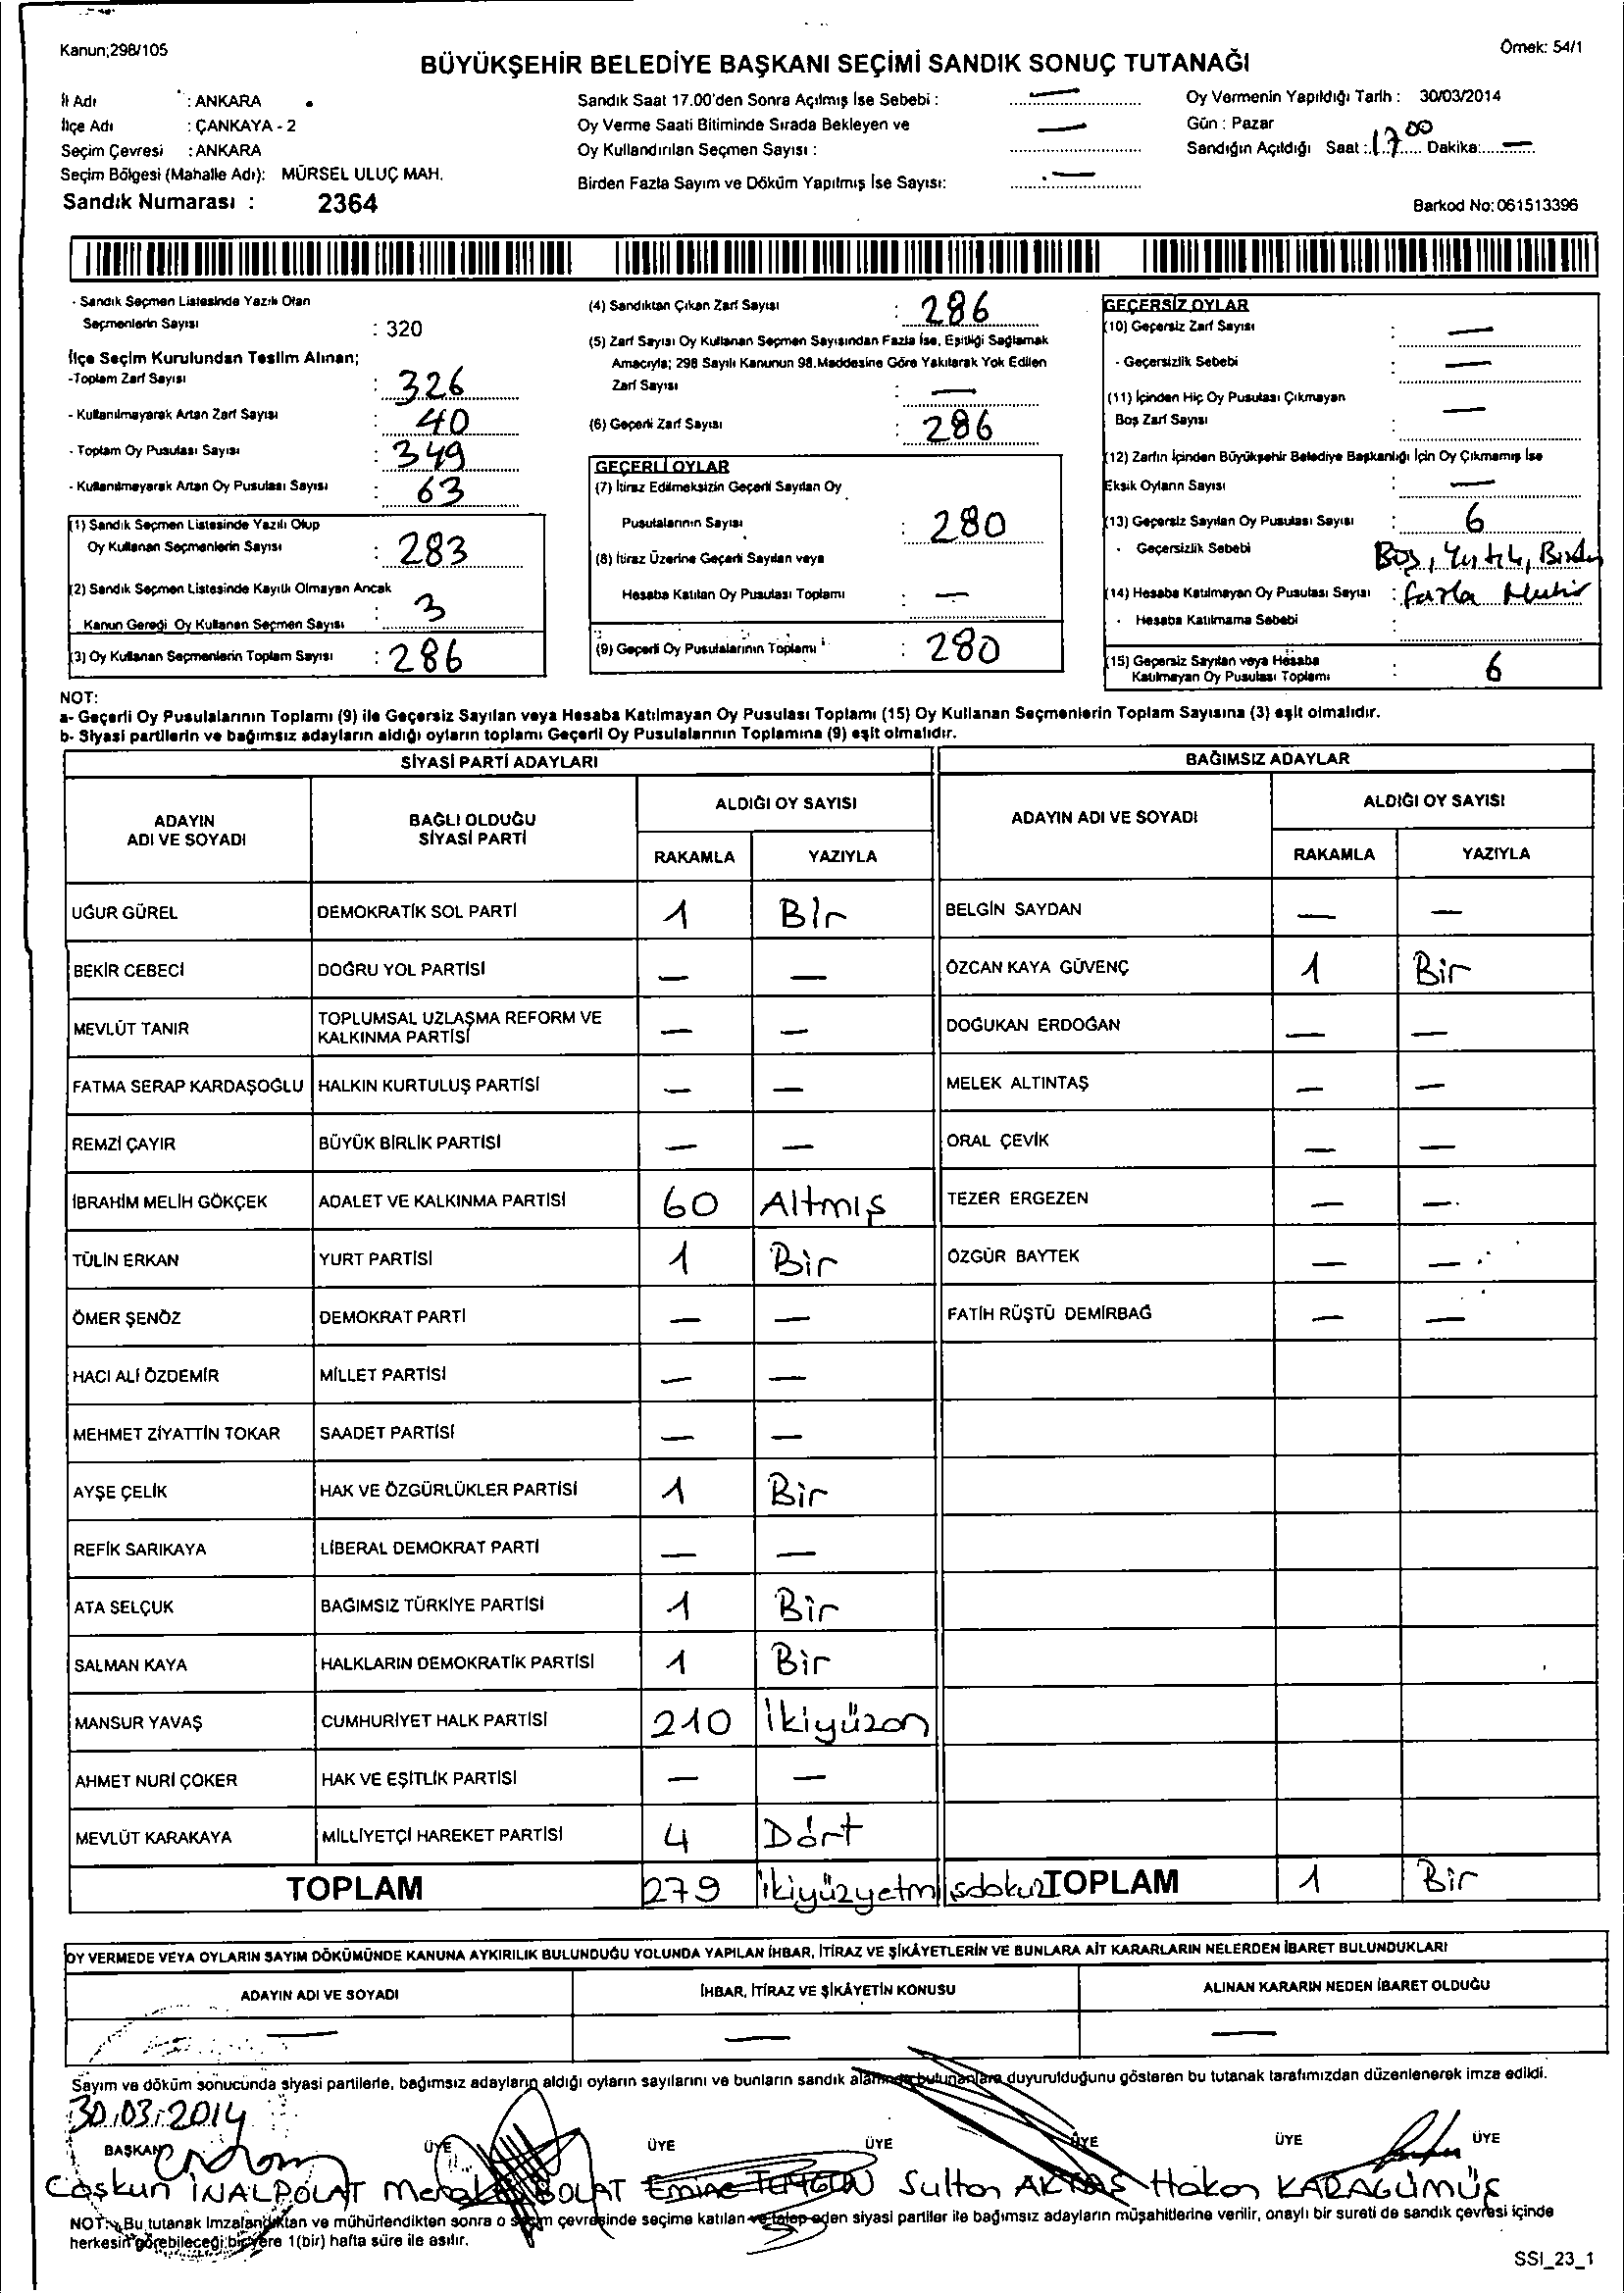 Kanun;298/105
Örnek: 54/1
BÜYÜKŞEHİR BELEDİYE BAŞKANI SEÇİMİ SANDIK SONUÇ TUTANAĞI
İl Adı : ANKARA
İlçe Adı : ÇANKAYA - 2
Seçim Çevresi : ANKARA
Seçim Bölgesi (Mahalle Adı): MÜRSEL ULUÇ MAH.
Sandık Numarası : 2364
Sandık Saat 17.00'den Sonra Açılmış İse Sebebi : —
Oy Verme Saati Bitiminde Sırada Bekleyen ve
Oy Kullandırılan Seçmen Sayısı : —
Birden Fazla Sayım ve Döküm Yapılmış İse Sayısı: —
Oy Vermenin Yapıldığı Tarih : 30/03/2014
Gün : Pazar
Sandığın Açıldığı Saat : 17 00 Dakika: —
Barkod No: 061513396
- Sandık Seçmen Listesinde Yazılı Olan
Seçmenlerin Sayısı : 320
İlçe Seçim Kurulundan Teslim Alınan;
-Toplam Zarf Sayısı : 326
- Kullanılmayarak Artan Zarf Sayısı : 40
- Toplam Oy Pusulası Sayısı : 349
- Kullanılmayarak Artan Oy Pusulası Sayısı : 63
(1) Sandık Seçmen Listesinde Yazılı Olup
Oy Kullanan Seçmenlerin Sayısı : 283
(2) Sandık Seçmen Listesinde Kayıtlı Olmayan Ancak
Kanun Gereği Oy Kullanan Seçmen Sayısı : 3
(3) Oy Kullanan Seçmenlerin Toplam Sayısı : 286
(4) Sandıktan Çıkan Zarf Sayısı : 286
(5) Zarf Sayısı Oy Kullanan Seçmen Sayısından Fazla İse, Eşitliği Sağlamak
Amacıyla; 298 Sayılı Kanunun 98.Maddesine Göre Yakılarak Yok Edilen
Zarf Sayısı : —
(6) Geçerli Zarf Sayısı : 286
GEÇERLİ OYLAR
(7) İtiraz Edilmeksizin Geçerli Sayılan Oy
Pusulalarının Sayısı : 280
(8) İtiraz Üzerine Geçerli Sayılan veya
Hesaba Katılan Oy Pusulası Toplamı : —
(9) Geçerli Oy Pusulalarının Toplamı : 280
GEÇERSİZ OYLAR
(10) Geçersiz Zarf Sayısı : —
- Geçersizlik Sebebi : —
(11) İçinden Hiç Oy Pusulası Çıkmayan
Boş Zarf Sayısı : —
(12) Zarfın İçinden Büyükşehir Belediye Başkanlığı İçin Oy Çıkmamış İse
Eksik Oyların Sayısı : —
(13) Geçersiz Sayılan Oy Pusulası Sayısı : 6
- Geçersizlik Sebebi Boş, Yırtık, Birden
(14) Hesaba Katılmayan Oy Pusulası Sayısı : fazla Mühür
- Hesaba Katılmama Sebebi :
(15) Geçersiz Sayılan veya Hesaba
Katılmayan Oy Pusulası Toplamı : 6
NOT:
a- Geçerli Oy Pusulalarının Toplamı (9) ile Geçersiz Sayılan veya Hesaba Katılmayan Oy Pusulası Toplamı (15) Oy Kullanan Seçmenlerin Toplam Sayısına (3) eşit olmalıdır.
b- Siyasi partilerin ve bağımsız adayların aldığı oyların toplamı Geçerli Oy Pusulalarının Toplamına (9) eşit olmalıdır.
SİYASİ PARTİ ADAYLARI
BAĞIMSIZ ADAYLAR
ADAYIN ADI VE SOYADI
BAĞLI OLDUĞU SİYASİ PARTİ
ALDIĞI OY SAYISI
RAKAMLA YAZIYLA
ADAYIN ADI VE SOYADI
ALDIĞI OY SAYISI
RAKAMLA YAZIYLA
UĞUR GÜREL DEMOKRATİK SOL PARTİ 1 Bir BELGİN SAYDAN — —
BEKİR CEBECİ DOĞRU YOL PARTİSİ — — ÖZCAN KAYA GÜVENÇ 1 Bir
MEVLÜT TANIR TOPLUMSAL UZLAŞMA REFORM VE KALKINMA PARTİSİ — — DOĞUKAN ERDOĞAN — —
FATMA SERAP KARDAŞOĞLU HALKIN KURTULUŞ PARTİSİ — — MELEK ALTINTAŞ — —
REMZİ ÇAYIR BÜYÜK BİRLİK PARTİSİ — — ORAL ÇEVİK — —
İBRAHİM MELİH GÖKÇEK ADALET VE KALKINMA PARTİSİ 60 Altmış TEZER ERGEZEN — —
TÜLİN ERKAN YURT PARTİSİ 1 Bir ÖZGÜR BAYTEK — —
ÖMER ŞENÖZ DEMOKRAT PARTİ — — FATİH RÜŞTÜ DEMİRBAĞ — —
HACI ALİ ÖZDEMİR MİLLET PARTİSİ — —
MEHMET ZİYATTİN TOKAR SAADET PARTİSİ — —
AYŞE ÇELİK HAK VE ÖZGÜRLÜKLER PARTİSİ 1 Bir
REFİK SARIKAYA LİBERAL DEMOKRAT PARTİ — —
ATA SELÇUK BAĞIMSIZ TÜRKİYE PARTİSİ 1 Bir
SALMAN KAYA HALKLARIN DEMOKRATİK PARTİSİ 1 Bir
MANSUR YAVAŞ CUMHURİYET HALK PARTİSİ 210 İkiyüzon
AHMET NURİ ÇOKER HAK VE EŞİTLİK PARTİSİ — —
MEVLÜT KARAKAYA MİLLİYETÇİ HAREKET PARTİSİ 4 Dört
TOPLAM 279 ikiyüzyetmişdokuz TOPLAM 1 Bir
OY VERMEDE VEYA OYLARIN SAYIM DÖKÜMÜNDE KANUNA AYKIRILIK BULUNDUĞU YOLUNDA YAPILAN İHBAR, İTİRAZ VE ŞİKÂYETLERİN VE BUNLARA AİT KARARLARIN NELERDEN İBARET BULUNDUKLARI
ADAYIN ADI VE SOYADI İHBAR, İTİRAZ VE ŞİKÂYETİN KONUSU ALINAN KARARIN NEDEN İBARET OLDUĞU
— — —
Sayım ve döküm sonucunda siyasi partilerle, bağımsız adayların aldığı oyların sayılarını ve bunların sandık alanında bulunanlara duyurulduğunu gösteren bu tutanak tarafımızdan düzenlenerek imza edildi.
30.03.2014
BAŞKAN ÜYE ÜYE ÜYE ÜYE ÜYE ÜYE
Coşkun İNALPOLAT BOLAT Emine Sultan AKTAŞ Hakan KARAGÜMÜŞ
NOT: Bu tutanak İmzalandıktan ve mühürlendikten sonra o seçim çevresinde seçime katılan ve talep eden siyasi partiler ile bağımsız adayların müşahitlerine verilir, onaylı bir sureti de sandık çevresi içinde
herkesin görebileceği bir yere 1(bir) hafta süre ile asılır.
SSI_23_1